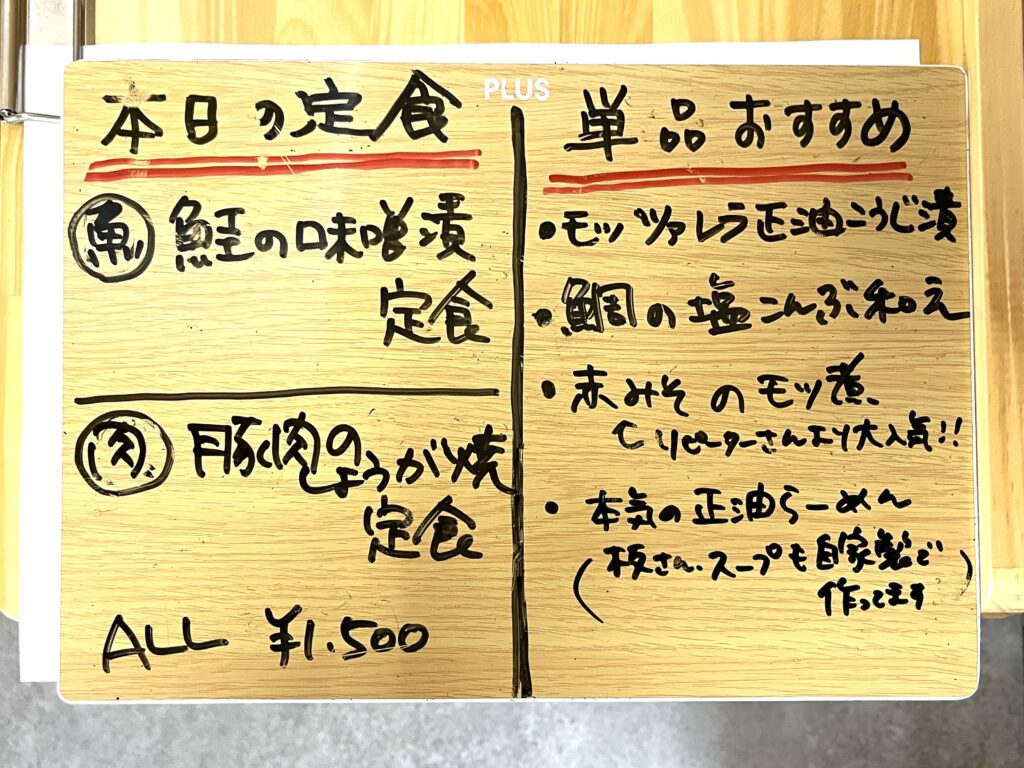 PLUS
本日の定食
魚 鮭の味噌漬
定食
肉 豚肉の
しょうが焼
定食
ALL ¥1.500
単品おすすめ
・モッツァレラ正油こうじ漬
・鯛の塩こんぶ和え
・赤みそのモツ煮
リピーターさんより大人気!!
・本気の正油らーめん
(板さん、スープも自家製で
作ってます)